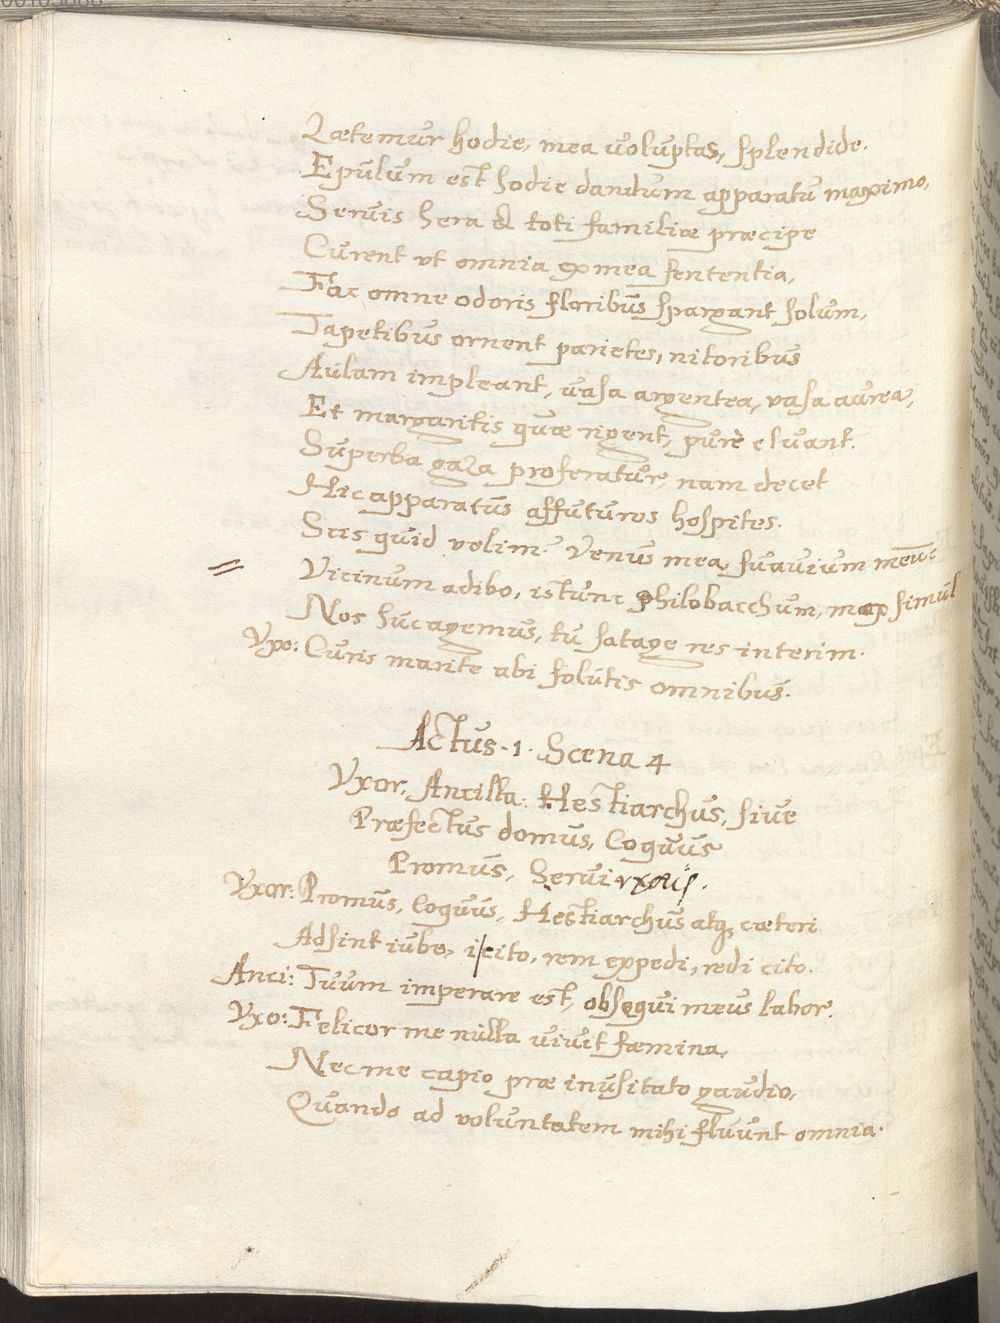 Lætemur hodie, mea voluptas, splendide.
Epulum est hodie dandum apparatu maximo,
Servis hera & toti familiæ præcipe
Curent vt omnia ex mea sententia,
Fac omne odoris floribus spargant solum,
Tapetibus ornent parietes, nitoribus
Aulam impleant, vasa argentea, vasa aurea,
Et margaritis quæ rigent, purè eluant.
Superba gaza proferatur, nam decet
Hic apparatus affuturos hospites.
Scis quid velim. Venus mea, suavium meum
Vicinum adibo, istunc Philobacchum, mox simul
Nos huc agemus, tu satage res interim.
Vxo: Curis marite abi solutis omnibus.
Actus. 1. Scena 4
Vxor, Ancilla. Hestiarchus, sive
Præfectus domus, Coquus
Promus, Servi vxoris.
Vxor: Promus, Coquus, Hestiarchus atq, cæteri
Adsint iube, i cito, rem expedi, redi cito.
Anci: Tuum imperare est, obsequi meus labor.
Vxo: Felicior me nulla vivit fæmina,
Nec me capio præ inusitato gaudio,
Quando ad voluntatem mihi fluunt omnia.